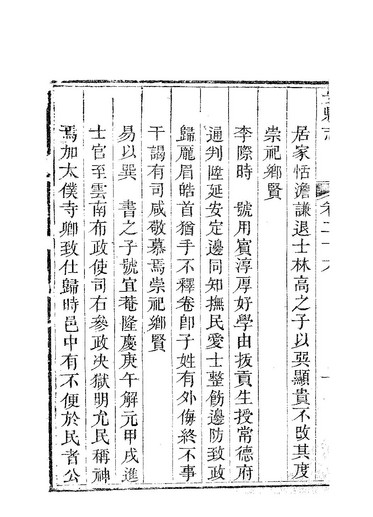 居家恬澹謙退士林高之子以巽顯貴不改其度
崇祀鄉賢
李際時　號用賓淳厚好學由拔貢生授常德府
通判陞延安定邊同知撫民愛士整飭邊防致政
歸龎眉皓首猶手不釋卷卽子姓有外侮終不事
干謁有司咸敬慕焉崇祀鄉賢
易以巽　書之子號宜菴隆慶庚午解元甲戌進
士官至雲南布政使司右參政決獄明允民稱神
焉加太僕寺卿致仕歸時邑中有不便於民者公